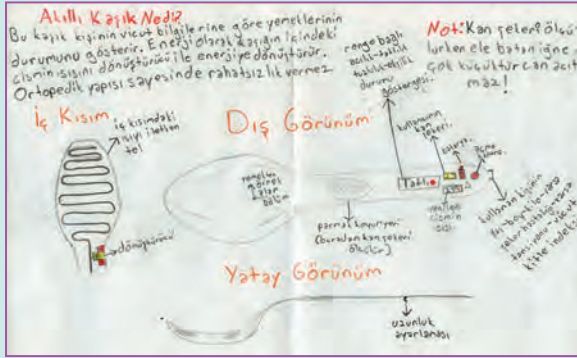 Akıllı Kaşık Nedir?
Bu kaşık kişinin vücut bilgilerine göre yemeklerinin
durumunu gösterir. Enerji olarak kaşığın içindeki
cismin ısısını dönüştürücü ile enerjiye dönüştürür.
Ortopedik yapısı sayesinde rahatsızlık vermez
Not: Kan şekeri ölçü
lurken ele batan iğne
çok küçüktür can acıt
maz!
İç Kısım
iç kısımdaki
ısıyı ileten
tel
dönüştürücü
Dış Görünüm
renge bağlı
acılık-tatlılık
tuzluluk-ekşilik
durumu
göstergesi
kullanıcının
kan
şekeri
batarya
Tatlı
cismin
ısısı
parmak koyma yeri
(buradan kan şekeri
ölçülür)
kullanan kişinin
kitle indeksi
Yatay Görünüm
uzunluk
ayarlaması